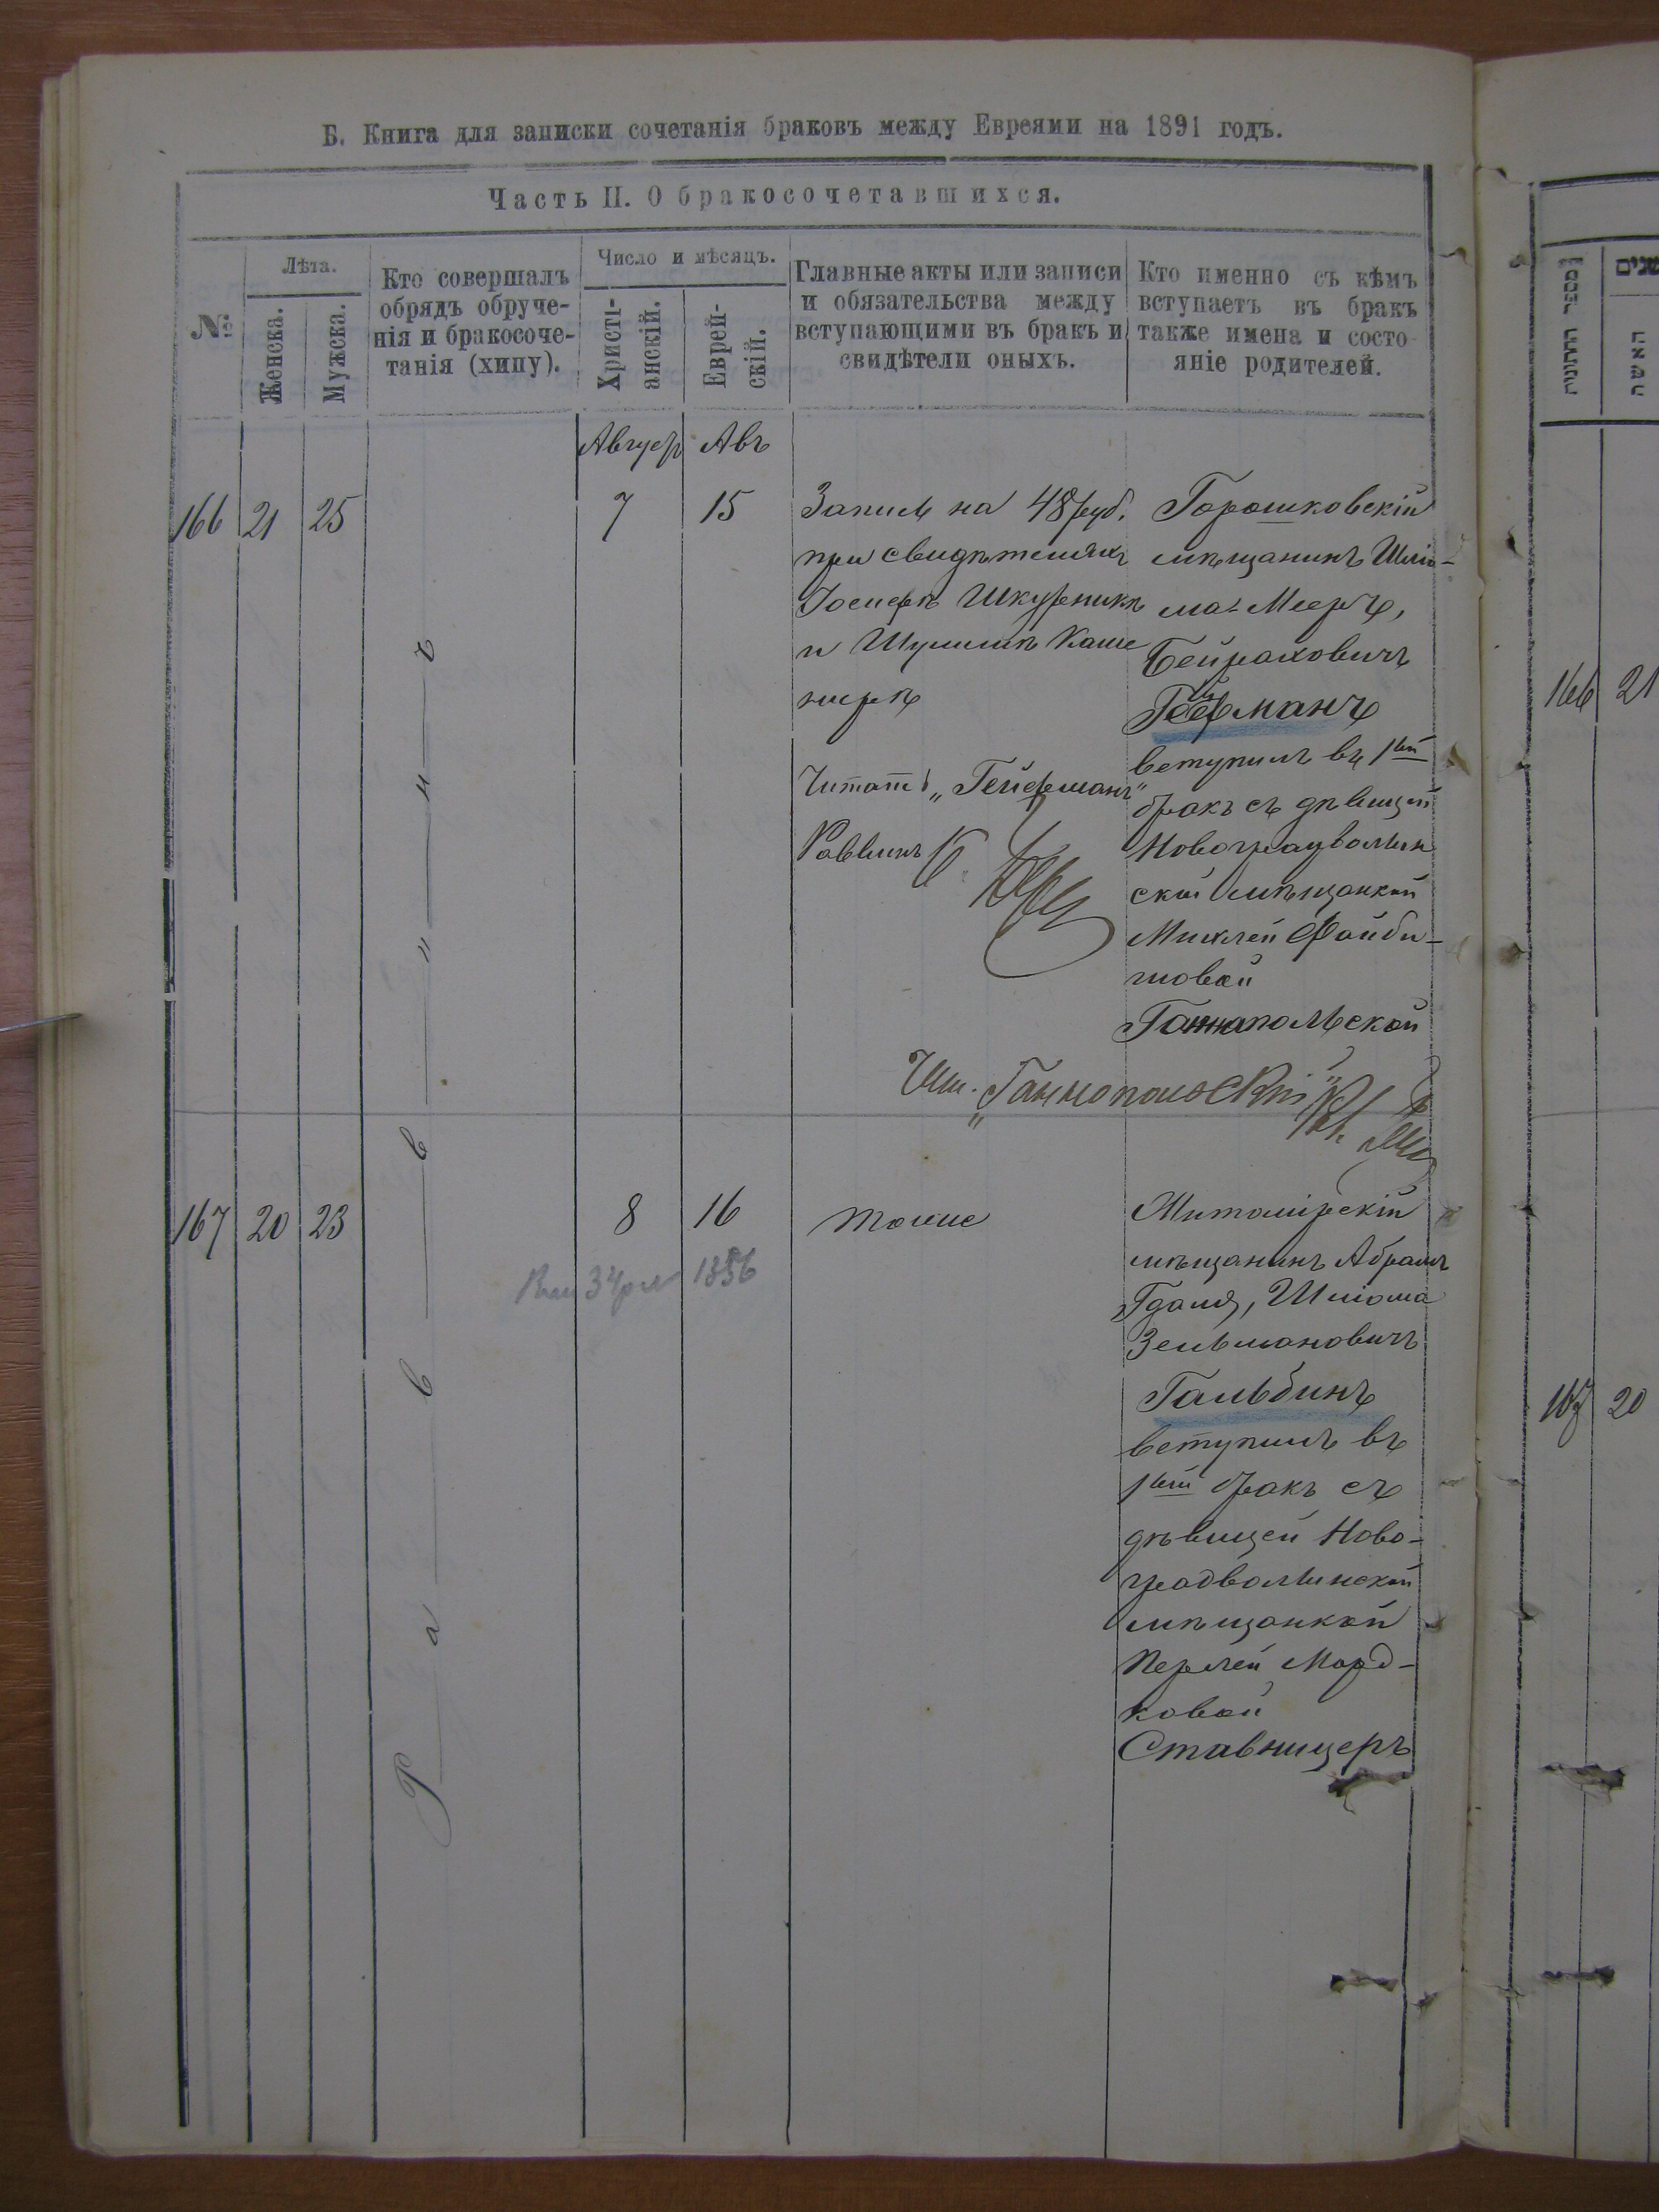 Б. Книга для записки сочетанія браковъ между Евреями на 1891 годъ.
Часть II. О бракосочетавшихся.
№
Лѣта.
Женска.
Мужска.
Кто совершалъ
обрядъ обруче-
нія и бракосоче-
танія (хипу).
Число и мѣсяцъ.
Христі-
анскій.
Еврей-
скій.
Главные акты или записи
и обязательства между
вступающими въ бракъ и
свидѣтели оныхъ.
Кто именно съ кѣмъ
вступаетъ въ бракъ
также имена и состо-
яніе родителей.
Август Авъ
166 21 25
7 15
Запись на 48 руб.
при свидѣтеляхъ
Іосифѣ Шкурникѣ
и Шулимѣ Каше
нирѣ
Читать „Гейфманъ"
Раввинъ
Горошковскій
мѣщанинъ Шлio-
ма-Мееръ,
Бейраховичъ
Гейфманъ
вступилъ въ 1ый
бракъ съ дѣвицей
Новоградволын
ской мѣщанкой
Михлей Файби-
шовой
Ганнапольской
Чит. „Ганнопольскій"
Раввинъ
167 20 23
8 16
тоже
1886
Житомірскій
мѣщанинъ Абрамъ
Гдаля, Шліома
Зельмановичъ
Гальбинъ
вступилъ въ
1ый бракъ съ
дѣвицей Ново-
градволынской
мѣщанкой
Перлей Морд-
ковой
Ставницеръ
מספר החתונה
שנים
האשה
166 21
167 20